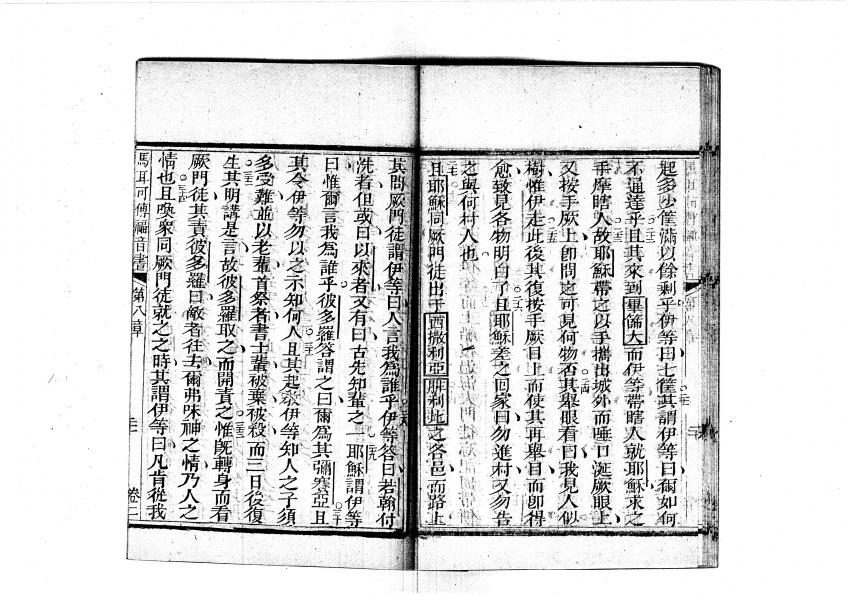 起多少筐滿以餘剩乎伊等曰七筐其謂伊等曰爾如何
不通達乎且其來到畢倫大而伊等帶瞎人就耶穌求之
手摩瞎人故耶穌帶之以手攜出城外而唾口涎厥眼上
又按手厥上即問之可見何物否其舉眼看曰我見人似
樹惟伊走此後其復按手厥目上而使其再舉目而卽得
愈致見各物明白了且耶穌差之回家曰勿進村又勿告
之與何村人也
且耶穌同厥門徒出于西撒利亞腓利比之各邑而路上
其問厥門徒謂伊等曰人言我為誰乎伊等答曰若翰付
洗者但或曰以來者又有曰古先知輩之一耶穌謂伊等
曰惟爾言我為誰乎彼多羅答謂之曰爾為其彌賽亞且
其令伊等勿以之示知何人且其起教伊等知人之子須
多受難並以老輩首祭者書士輩被棄被殺而三日後復
生其明講是言故彼多羅取之而開責之惟旣轉身而看
厥門徒其責彼多羅曰敵者往去爾弗味神之情乃人之
情也且喚眾同厥門徒就之之時其謂伊等曰凡肯從我
馬耳可傳福音書 第八章 卷二